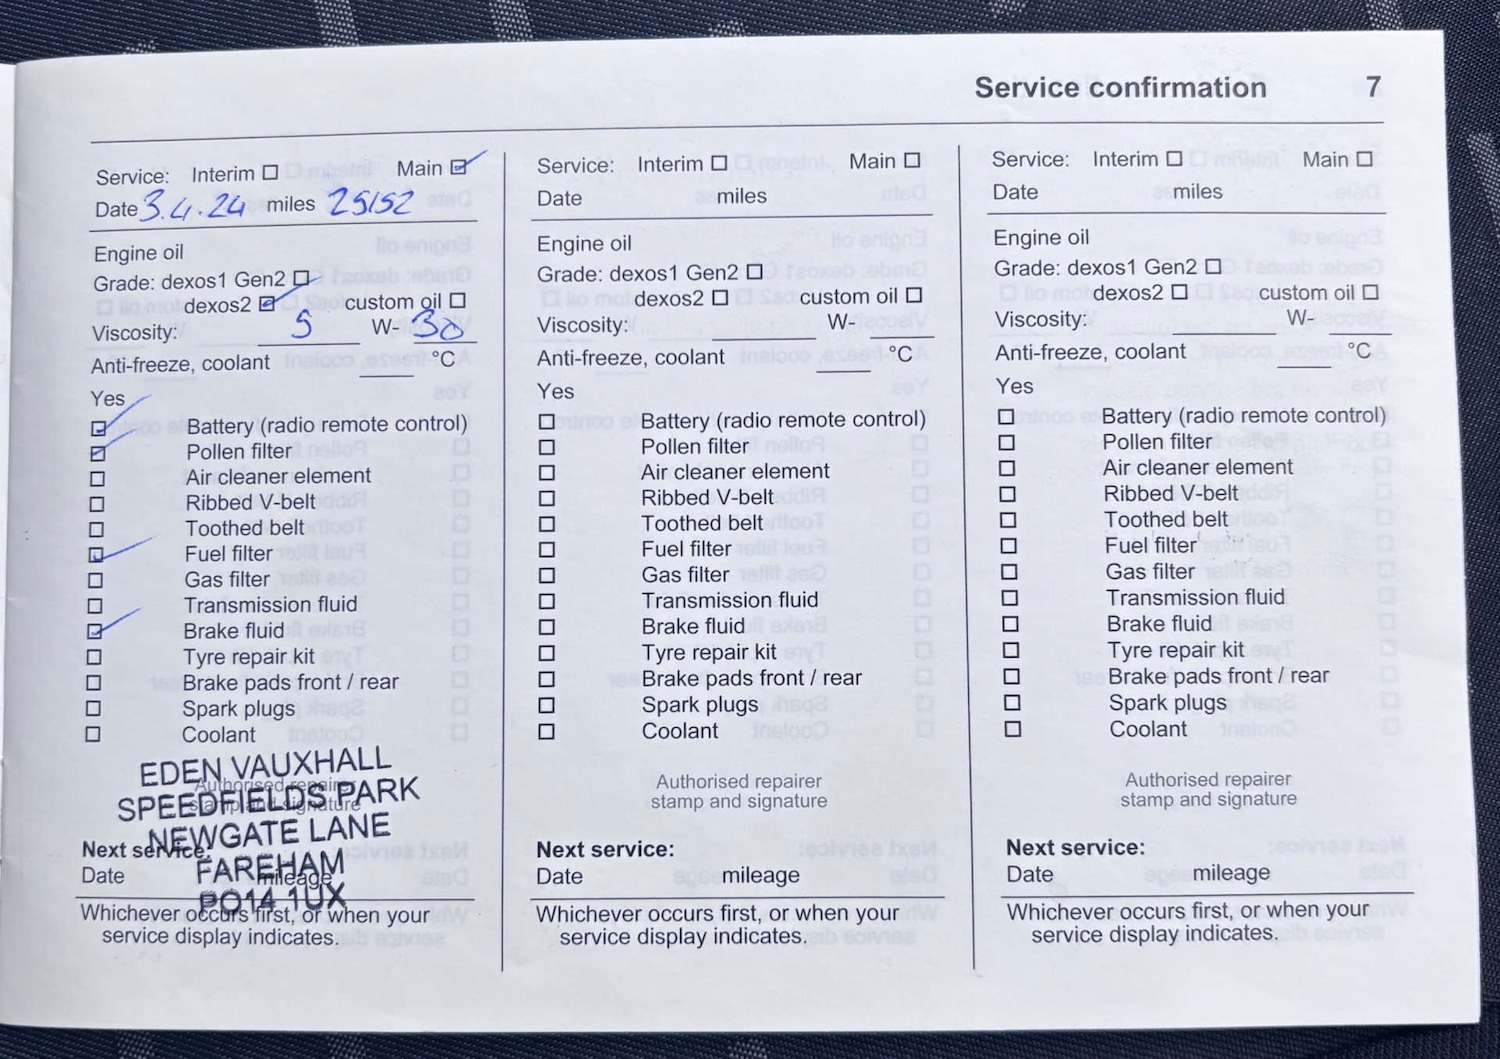 Service confirmation 7
Service: Interim ☐ Main ☑
Date 3.4.24 miles 25152
Engine oil
Grade: dexos1 Gen2 ☐
dexos2 ☑ custom oil ☐
Viscosity: 5 W- 30
Anti-freeze, coolant °C
Yes
☑ Battery (radio remote control)
☑ Pollen filter
☐ Air cleaner element
☐ Ribbed V-belt
☐ Toothed belt
☑ Fuel filter
☐ Gas filter
☐ Transmission fluid
☑ Brake fluid
☐ Tyre repair kit
☐ Brake pads front / rear
☐ Spark plugs
☐ Coolant
Authorised repairer
stamp and signature
EDEN VAUXHALL
SPEEDFIELDS PARK
NEWGATE LANE
FAREHAM
PO14 1UX
Next service:
Date mileage
Whichever occurs first, or when your
service display indicates.
Service: Interim ☐ Main ☐
Date miles
Engine oil
Grade: dexos1 Gen2 ☐
dexos2 ☐ custom oil ☐
Viscosity: W-
Anti-freeze, coolant °C
Yes
☐ Battery (radio remote control)
☐ Pollen filter
☐ Air cleaner element
☐ Ribbed V-belt
☐ Toothed belt
☐ Fuel filter
☐ Gas filter
☐ Transmission fluid
☐ Brake fluid
☐ Tyre repair kit
☐ Brake pads front / rear
☐ Spark plugs
☐ Coolant
Authorised repairer
stamp and signature
Next service:
Date mileage
Whichever occurs first, or when your
service display indicates.
Service: Interim ☐ Main ☐
Date miles
Engine oil
Grade: dexos1 Gen2 ☐
dexos2 ☐ custom oil ☐
Viscosity: W-
Anti-freeze, coolant °C
Yes
☐ Battery (radio remote control)
☐ Pollen filter
☐ Air cleaner element
☐ Ribbed V-belt
☐ Toothed belt
☐ Fuel filter
☐ Gas filter
☐ Transmission fluid
☐ Brake fluid
☐ Tyre repair kit
☐ Brake pads front / rear
☐ Spark plugs
☐ Coolant
Authorised repairer
stamp and signature
Next service:
Date mileage
Whichever occurs first, or when your
service display indicates.